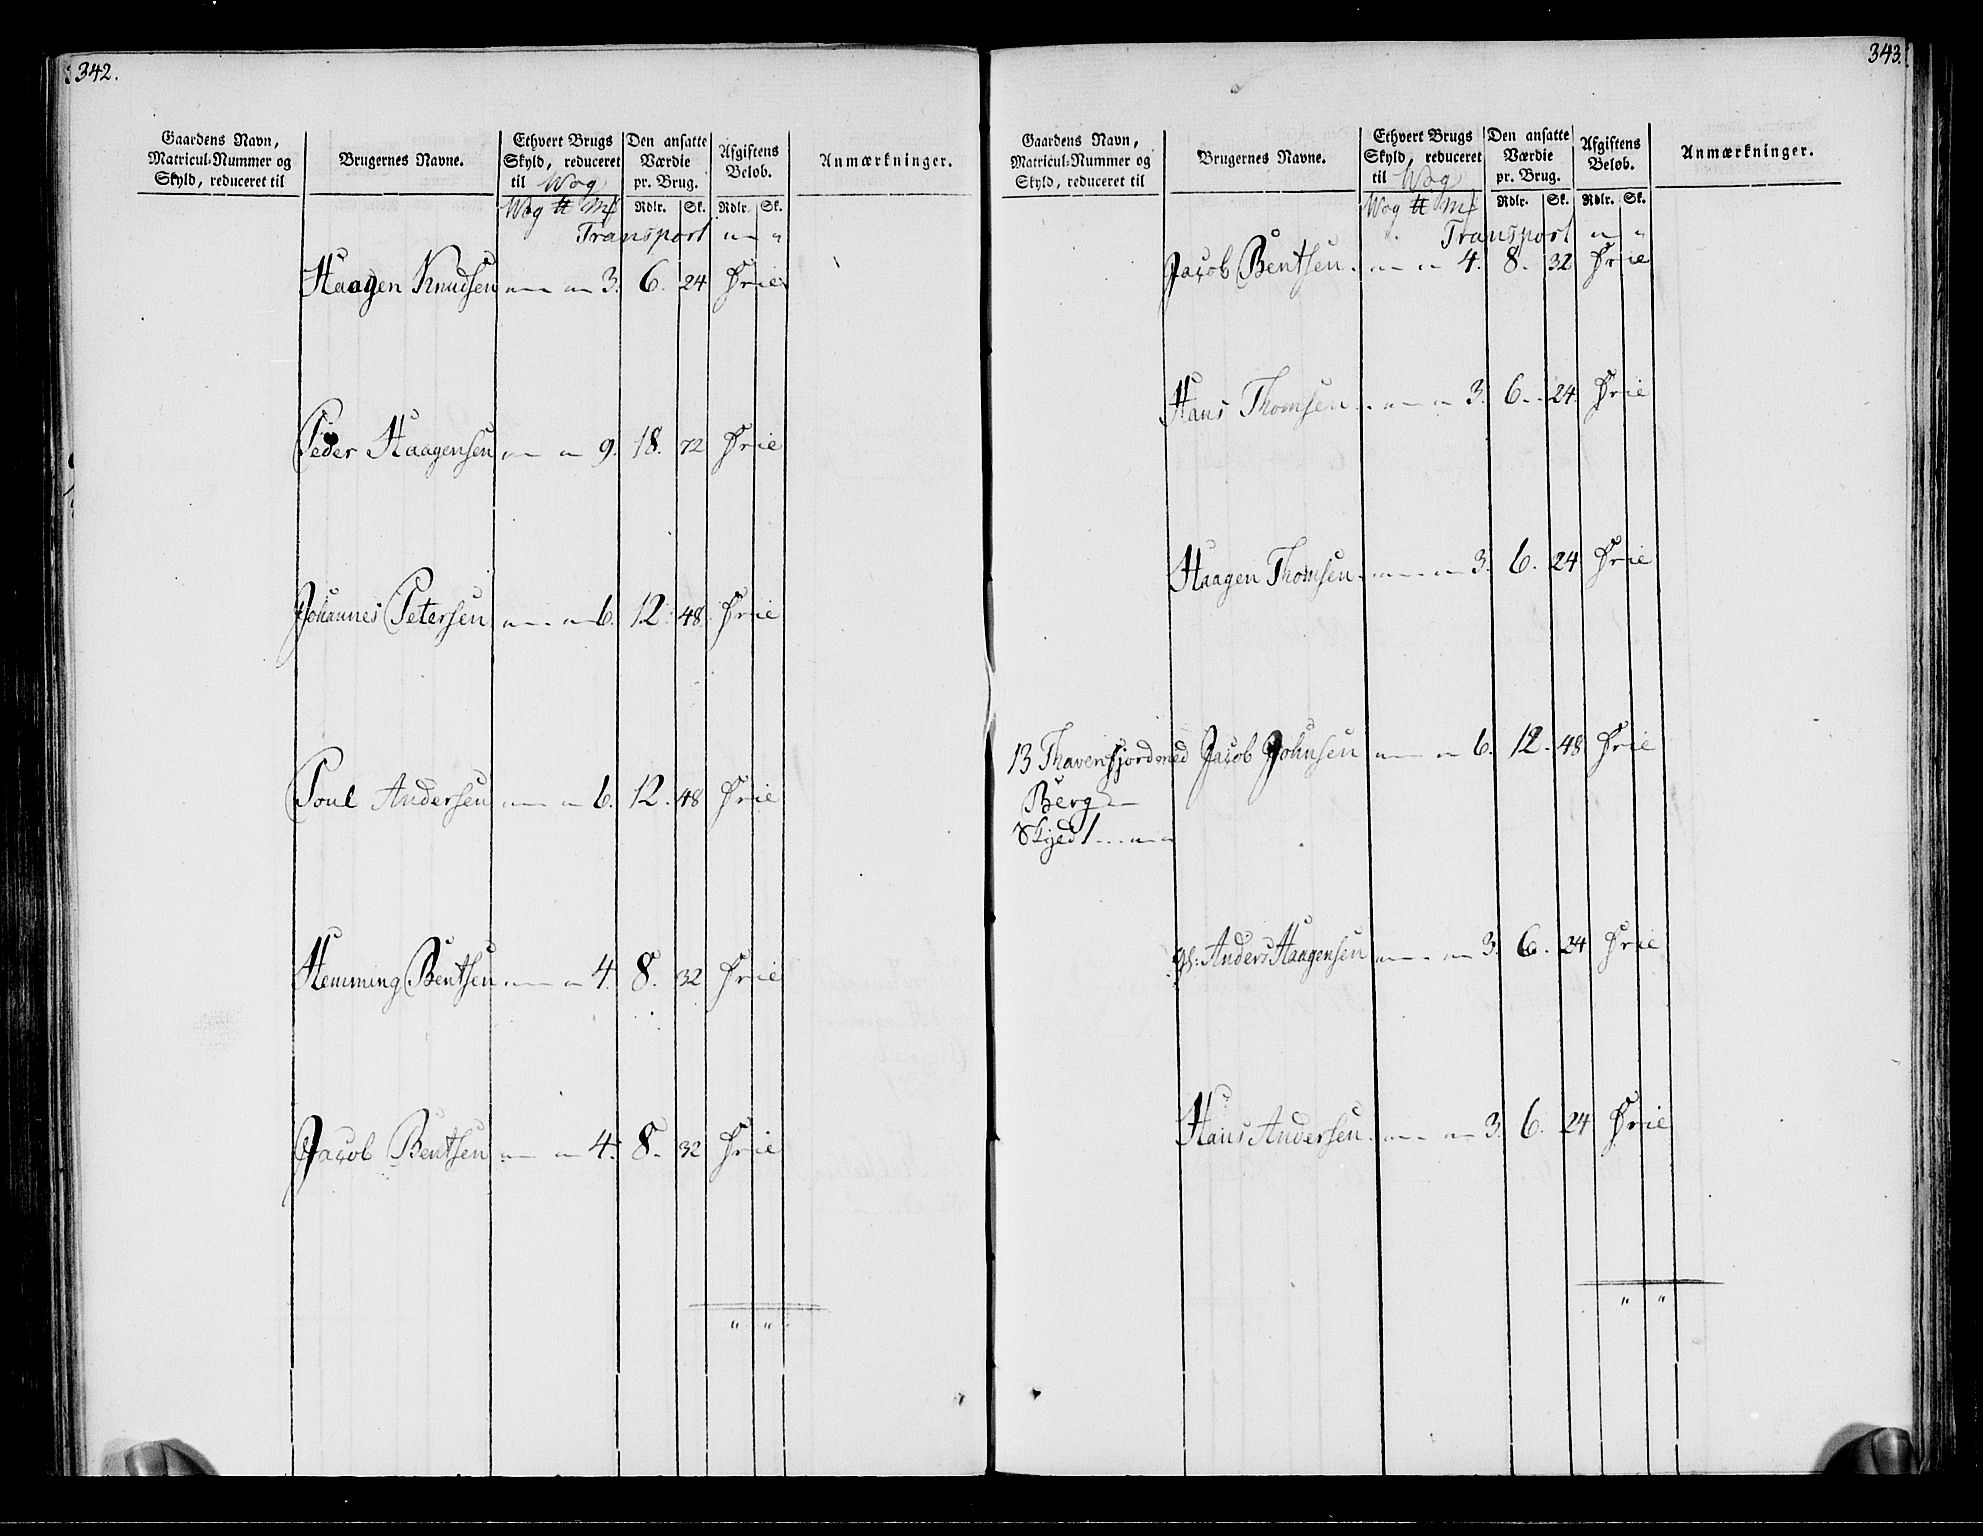 342.
Gaardens Navn,
Matricul-Nummer og
Skyld, reduceret til
Brugernes Navne.
Ethvert Brugs
Skyld, reduceret
til Wog
Wog ℔ Mk
Den ansatte
Værdie
pr. Brug.
Rdlr. Sk.
Afgiftens
Beløb.
Rdlr. Sk.
Anmærkninger.
Transport " "
Haagen Knudsen " " 3. 6. 24 Frie
Peder Haagensen " " 9. 18. 72 Frie
Johannes Petersen " " 6. 12. 48. Frie
Poul Andersen " " 6. 12. 48 Frie
Hemming Bentsen " " 4. 8. 32 Frie
Jacob Bentsen " " 4. 8. 32 Frie
" "
343.
Gaardens Navn,
Matricul-Nummer og
Skyld, reduceret til
Brugernes Navne.
Ethvert Brugs
Skyld, reduceret
til Wog
Wog ℔ Mk
Den ansatte
Værdie
pr. Brug.
Rdlr. Sk.
Afgiftens
Beløb.
Rdlr. Sk.
Anmærkninger.
Transport " "
Jacob Bentsen " " 4. 8. 32 Frie
Hans Thomsen " " 3. 6. 24. Frie
Haagen Thomsen " " 3. 6. 24 Frie
13 Thavensfjord med Jacob Johnsen " " 6. 12. 48 Frie
Berg
Skyld 1 " "
Anders Haagensen " " 3. 6. 24 Frie
Hans Andersen " " 3. 6. 24 Frie
" "